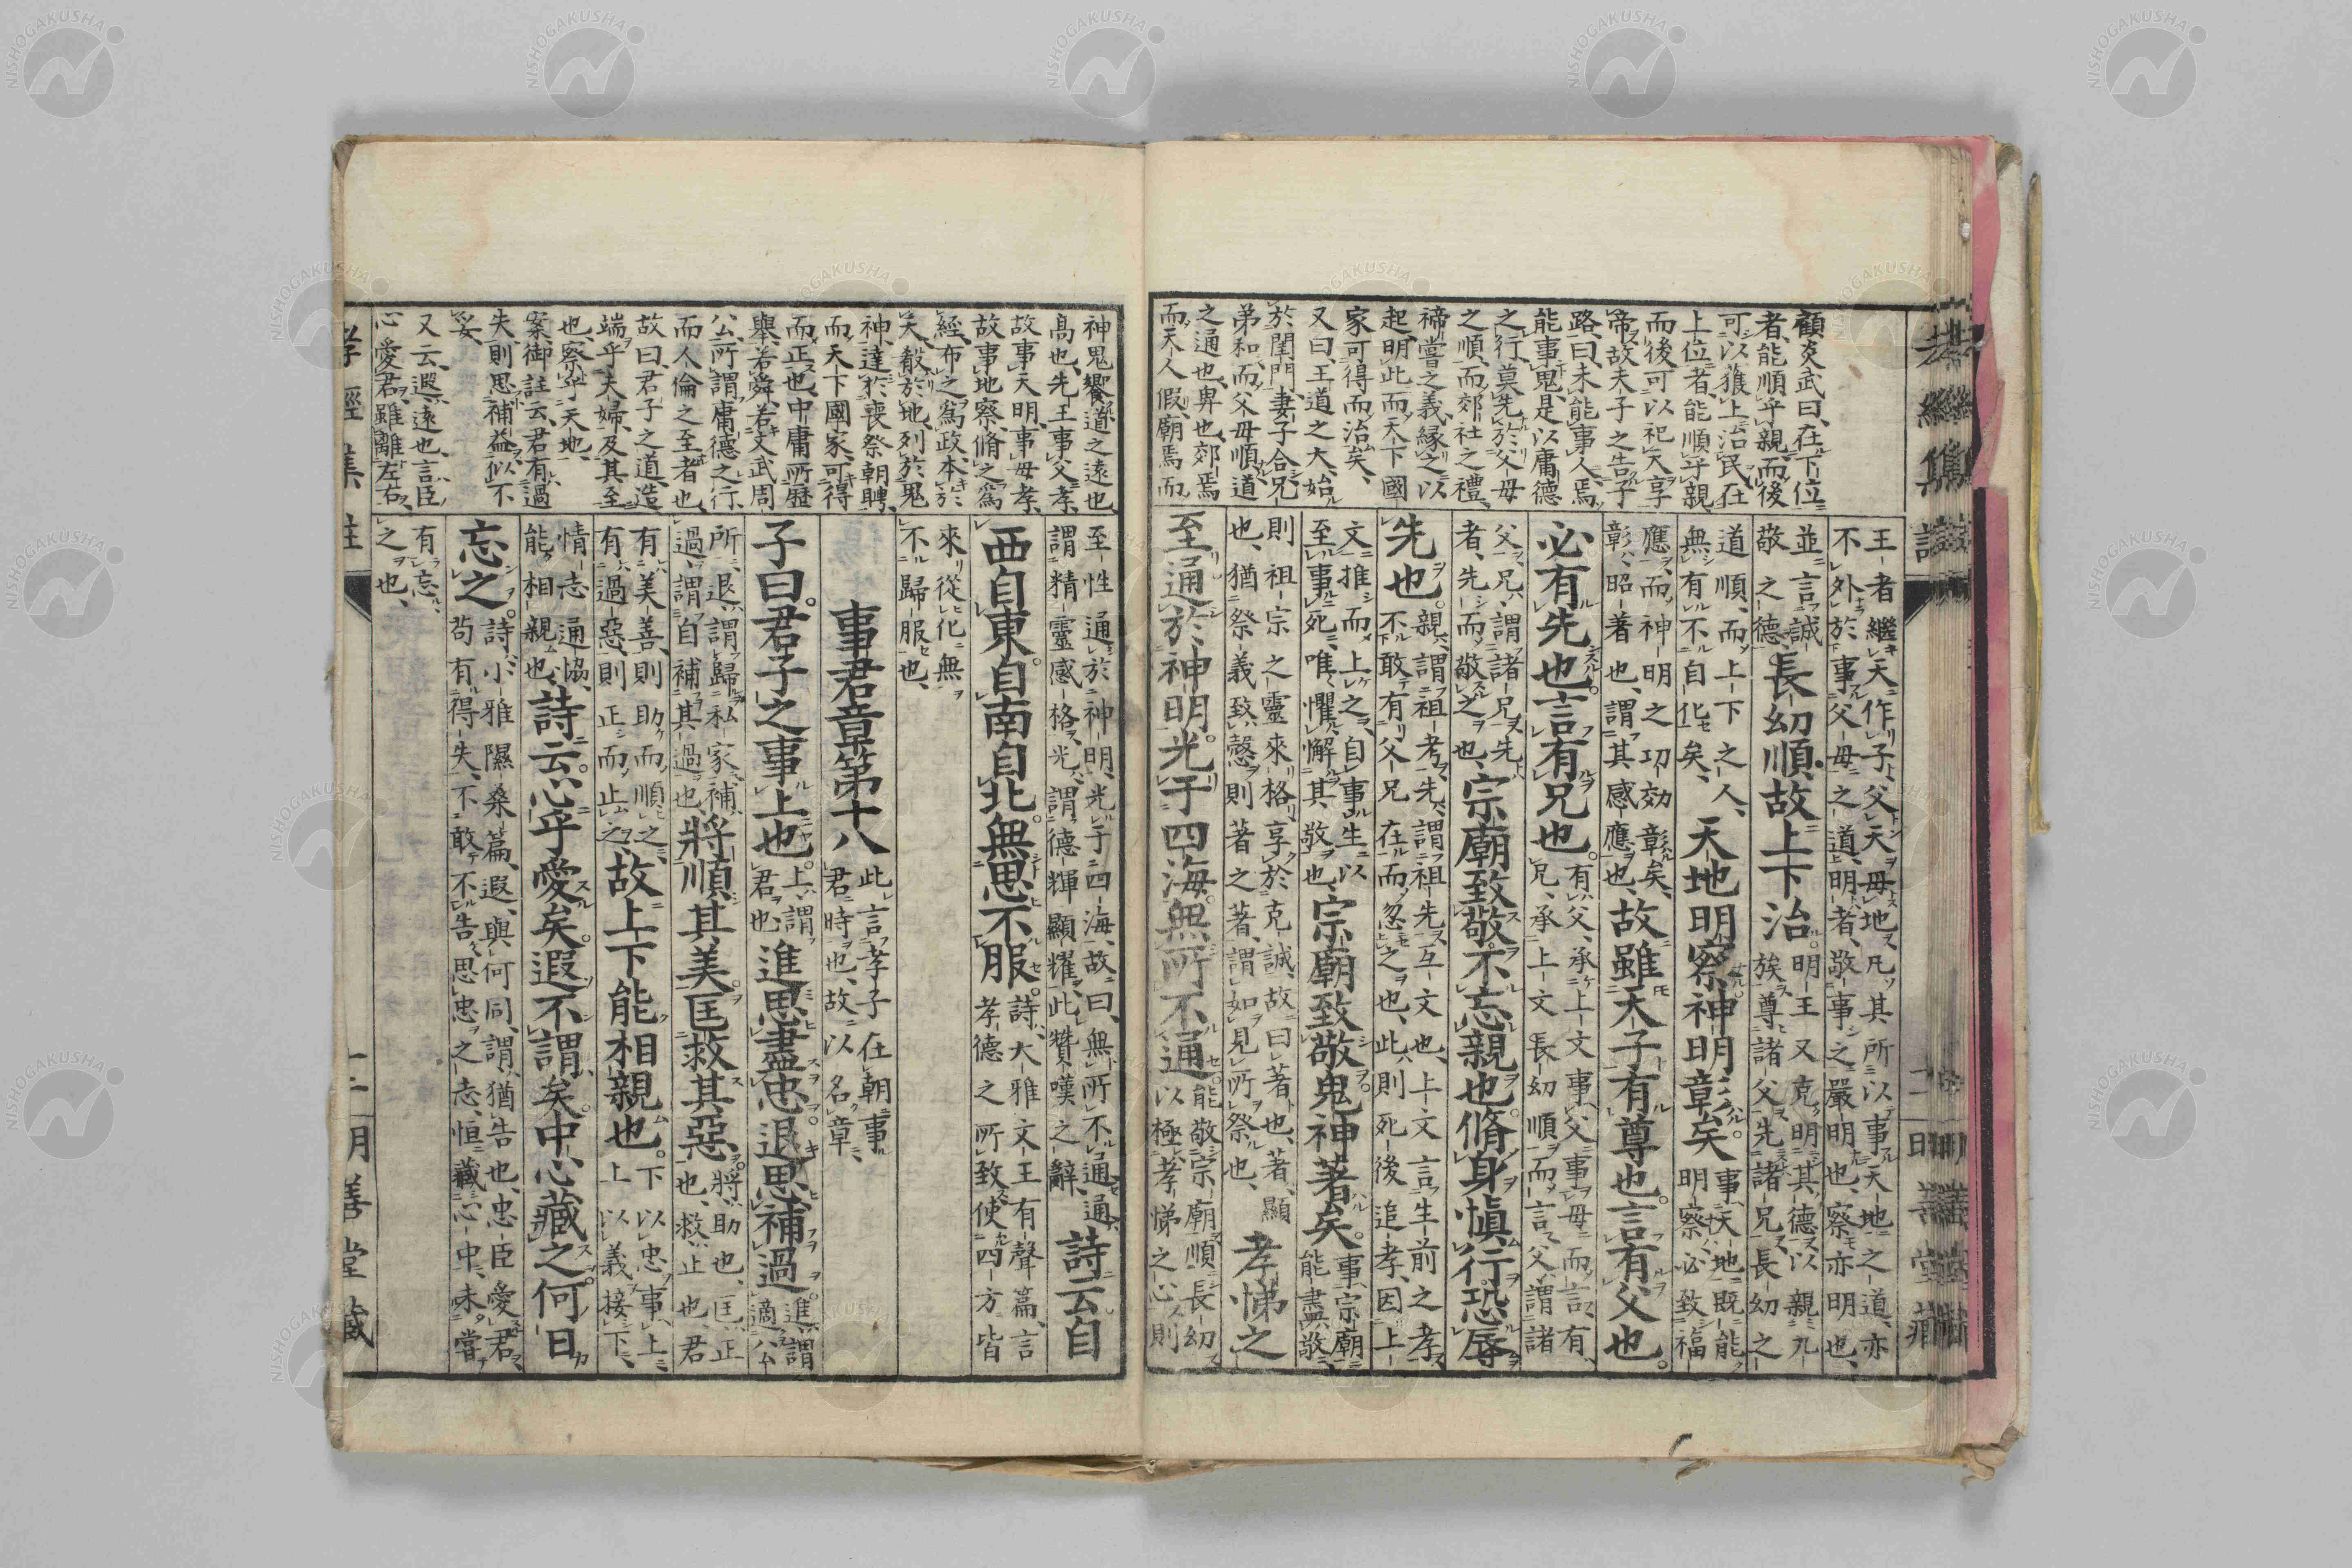 顧炎武曰、在下位
者、能順乎親、而後
可以獲上治民、在
上位者、能順乎親、
而後可以祀天享
帝、故夫子之告子
路、曰、未能事人、焉
能事鬼、是以庸德
之行、莫先於父母
之順、而郊社之禮、
禘嘗之義、緣之以
起、明此而天下國
家可得而治矣、
又曰、王道之大、始
於閨門、妻子合、兄
弟和、而父母順、道
之通也、卑也、郊焉
而天人假、廟焉而
王者繼天作子、父天母地、凡其所以事天地之道、亦
不外於事父母之道、明者、敬事之嚴明也、察亦明也、
並言誠
敬之德、長幼順、故上下治。明王又克明其德、以親九
族、尊諸父、先諸兄、長幼之
道順、而上下之人、
無有不自化矣、天地明察、神明彰矣。事天地、既能
明察、必致福
應、而神明之功効彰矣、
彰、昭著也、謂其感應也、故雖天子、有尊也。言有父也。
必有先也。言有兄也。有父、承上文事父事母而言、有
兄、承上文長幼順而言、父、謂諸
父、兄、謂諸兄、先
者、先而敬之也、宗廟致敬、不忘親也。脩身愼行、恐辱
先也。親、謂祖考、先、謂祖先、互文也、上文言生前之孝、
不敢有父兄在而忽之也、此則死後追孝、因上
文推而上之、自事生以
至事死、唯懼懈其敬也、宗廟致敬、鬼神著矣。事宗廟、
能盡敬、
則祖宗之靈來格、享於克誠、故曰著也、著、顯
也、猶祭義致愨則著之著、謂如見所祭也、孝悌之
至、通於神明、光于四海、無所不通。能敬宗廟、順長幼、
以極孝悌之心、則
孝經集註
明善堂藏
神鬼饗、道之遠也
高也、先王事父孝、
故事天明、事母孝、
故事地察、脩之爲
經、布之爲政、本於
天、殽於地、列於鬼
神、達於喪祭朝聘、
而天下國家、可得
而正也、中庸所歷
舉、若舜、若文武周
公、所謂庸德之行、
而人倫之至者也、
故曰、君子之道、造
端乎夫婦、及其至
也、察乎天地、
案、御註云、君有過
失、則思補益、似不
妥、
又云、遐、遠也、言、臣
心愛君、雖離左右、
至性通於神明、光于四海、故曰、無所不通、通、
謂精靈感格、光、謂德輝顯耀、此贊嘆之辭、詩云、自
西自東。自南自北。無思不服。詩、大雅文王有聲篇、言
孝德之所致、使四方皆
來從化、無
不歸服也、
事君章第十八 此言孝子在朝事
君時也、故以名章、
子曰。君子之事上也。上、謂
君也、進思盡忠。退思補過。進、謂
適公
所、退、謂歸私家、補
過、謂自補其過也、將順其美。匡救其惡。將、助也、匡、正
也、救、止也、君
有美善、則助而順之、
有過惡、則正而止之、故上下能相親也。下以忠事上、
上以義接下、
情志通協、
能相親也、詩云。心乎愛矣。遐不謂矣。中心藏之。何日
忘之。詩、小雅隰桑篇、遐、與何同、謂、猶告也、忠臣愛君、
苟有得失、不敢不告、思忠之志、恒藏心中、未嘗
有忘
之也、
孝經集註
十二
明善堂藏